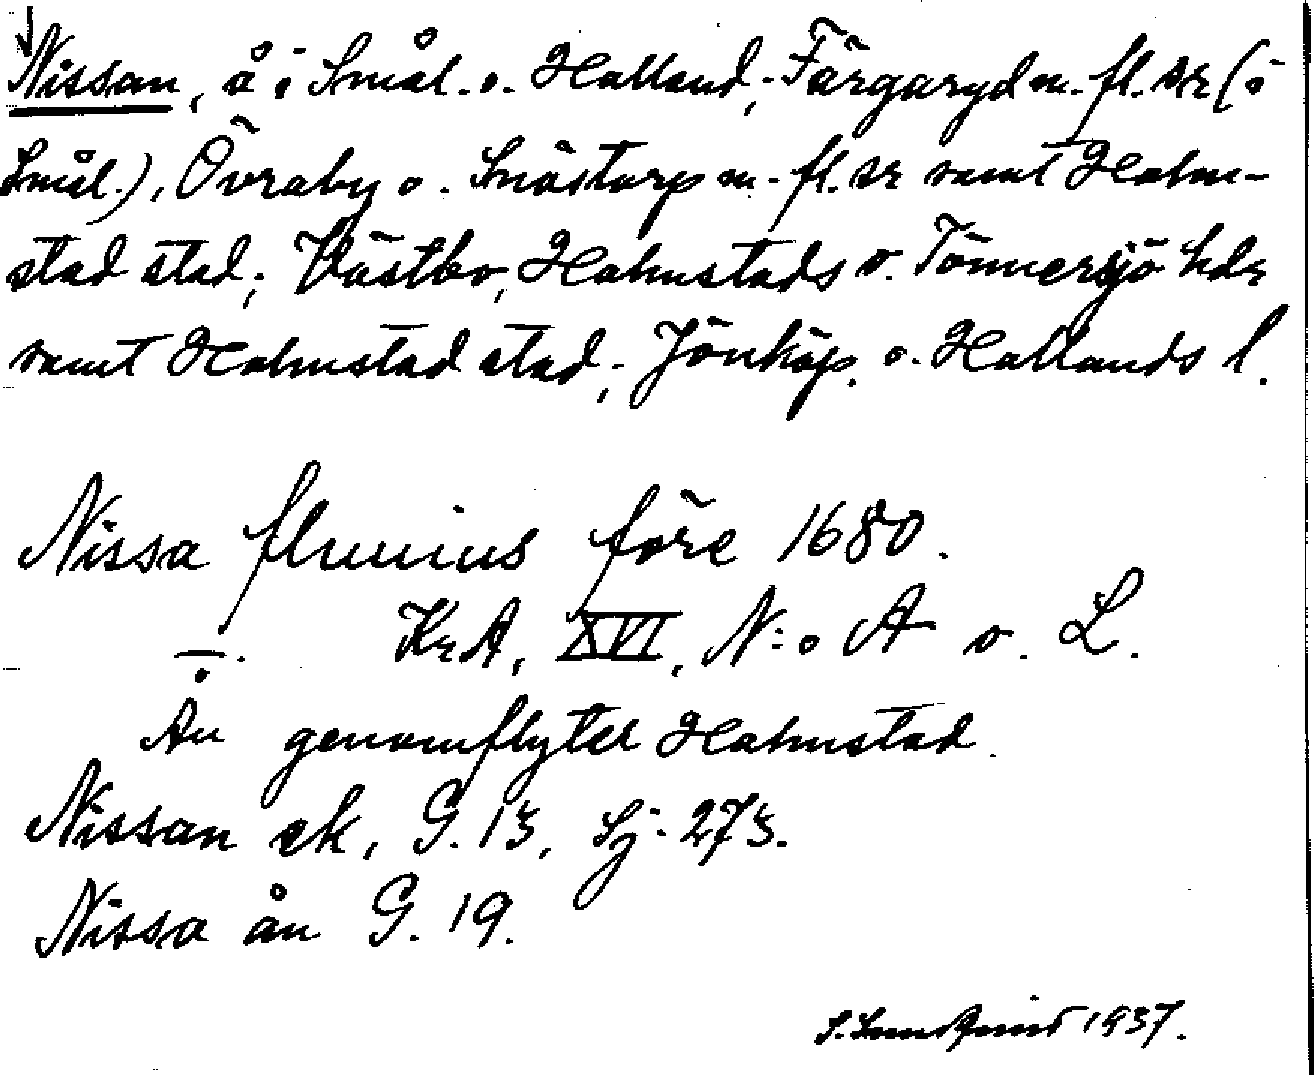 Nissan, å i Smål. o. Halland; Färgaryd m. fl. sr (i
Smål.), Övraby o. Snöstorp m. fl. sr samt Halm-
stad stad; Västbo, Halmstads o. Tönnersjö hdr
samt Halmstad stad; Jönköp. o. Hallands l.
Nissa fluuius före 1680.
KrA, XVI, N:o A o. L.
Ån genomflytel Halmstad.
Nissan ek, G. 13, Lj. 273.
Nissa ån G. 19.
1937.